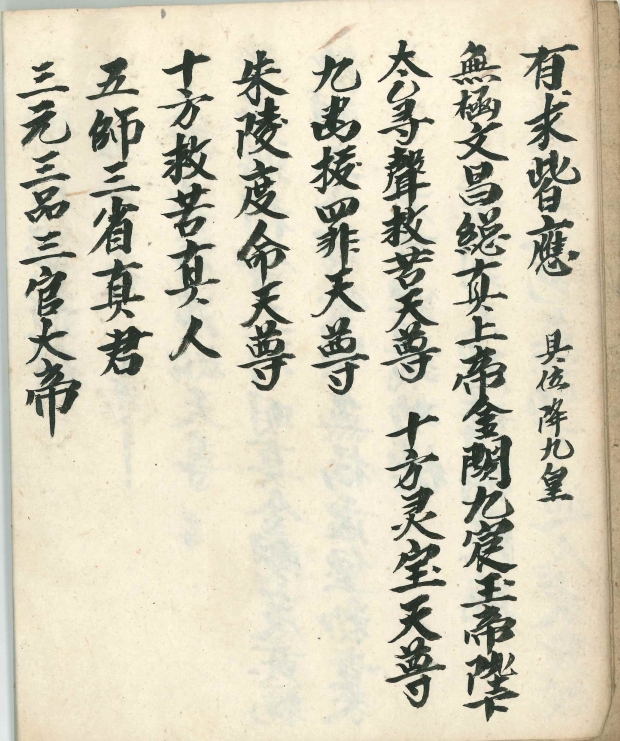 有求皆應　具位降九皇
無極文昌緫真上帝金闕九宸玉帝陛下
太乙寻聲救苦天尊　十方灵宝天尊
九幽拔罪天尊
朱陵度命天尊
十方救苦真人
五師三省真君
三元三品三官大帝